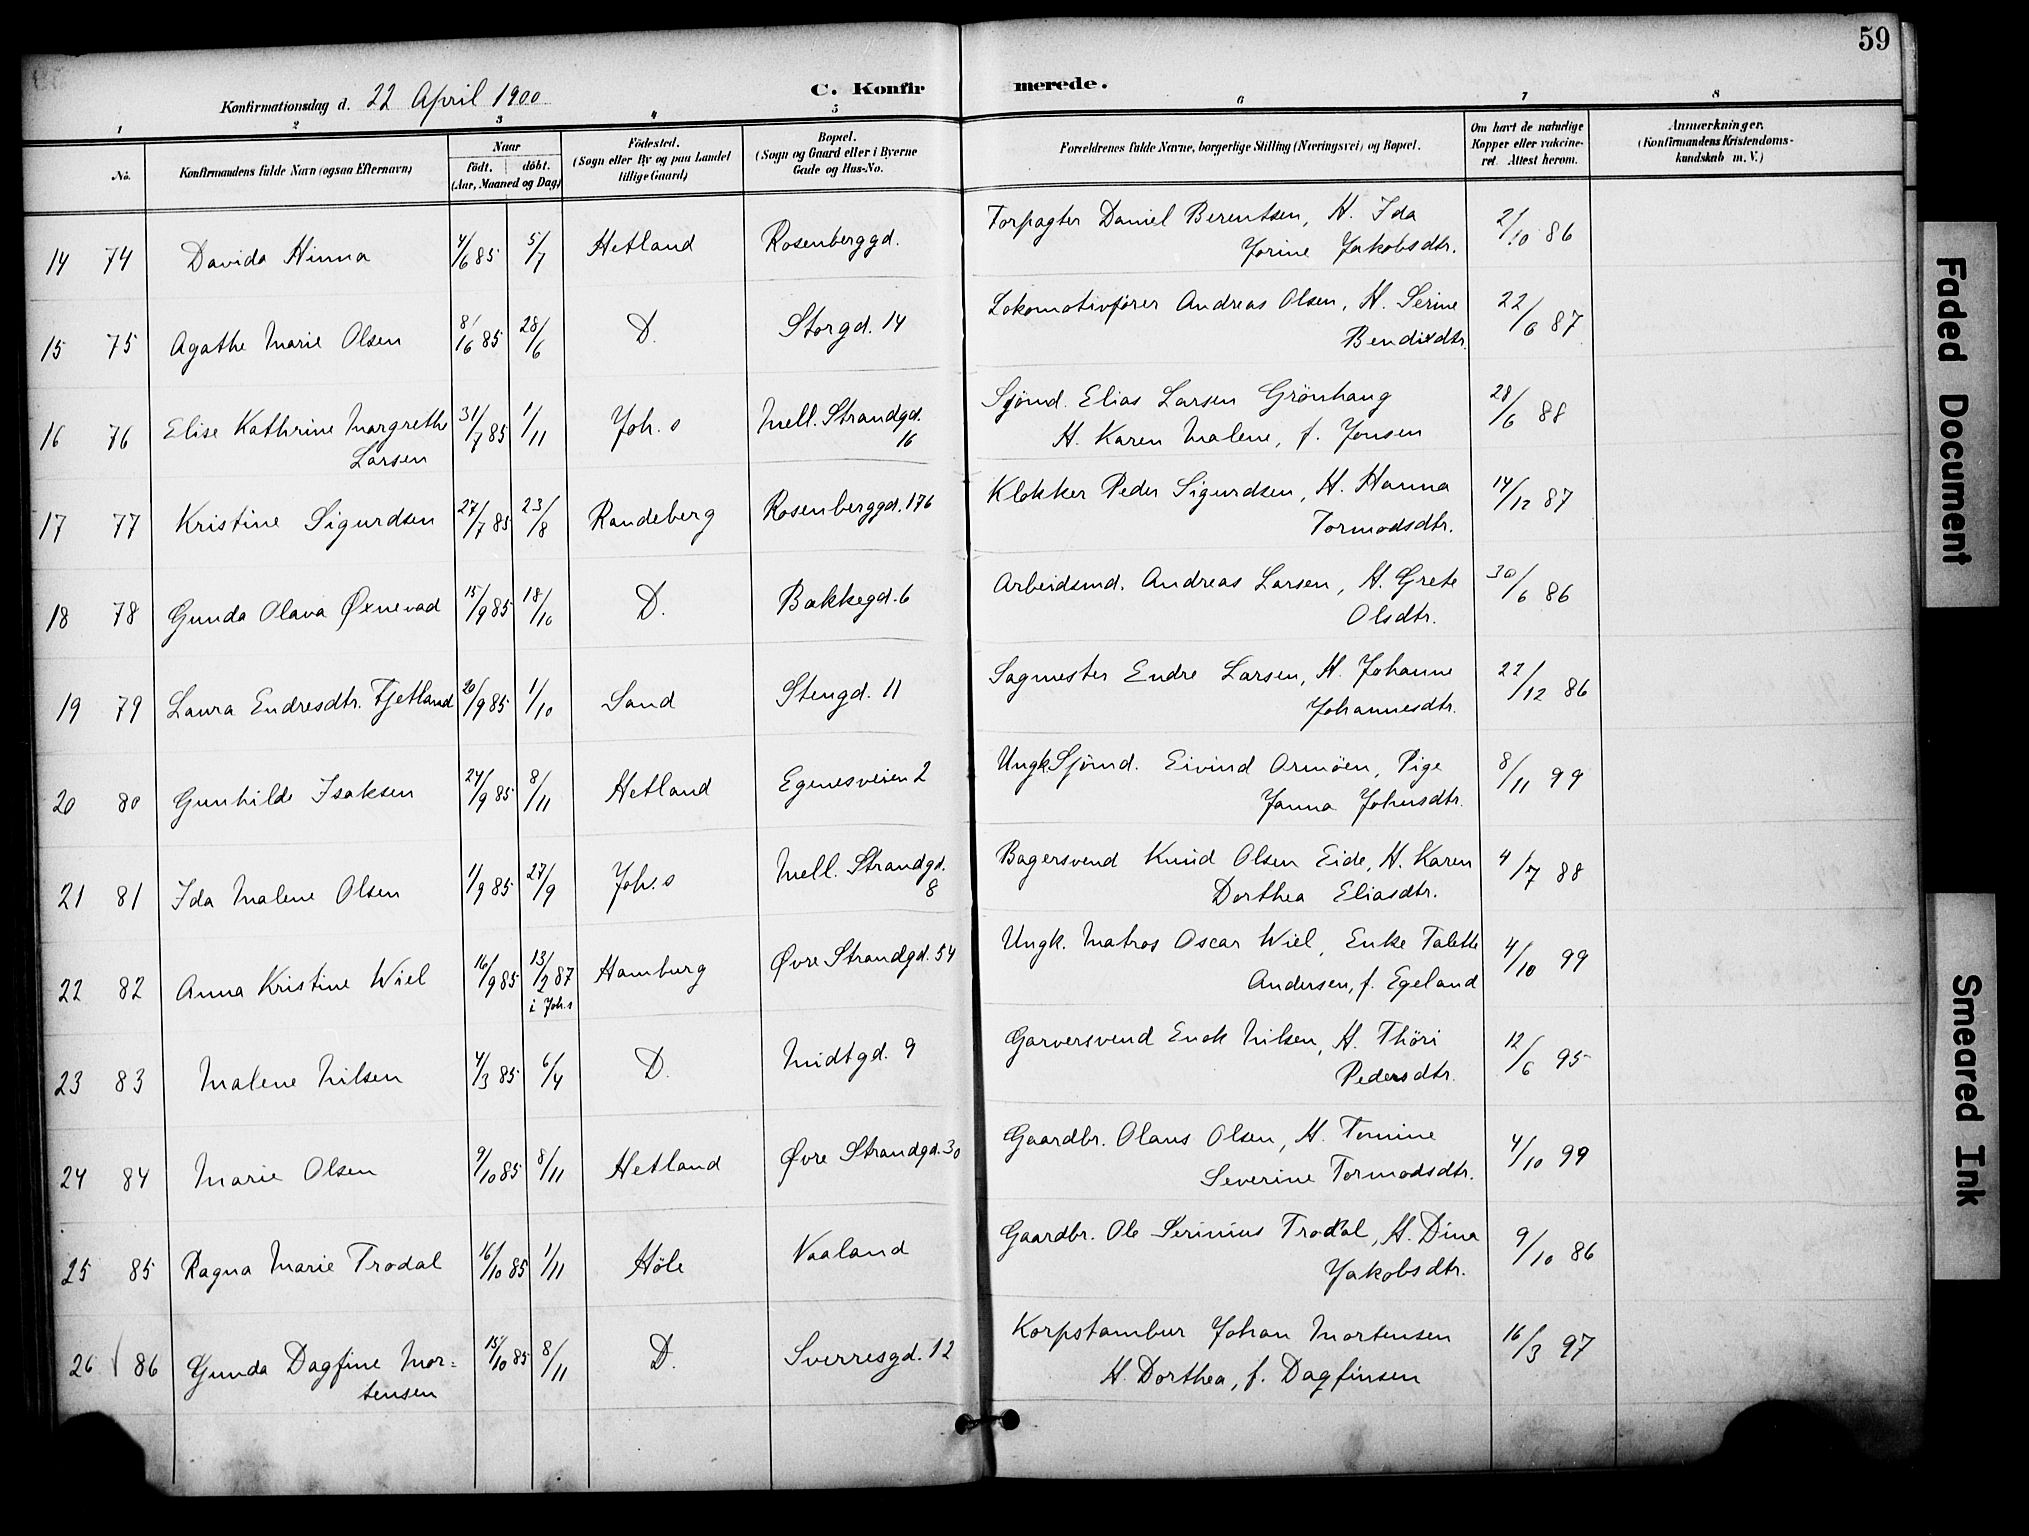 59
Konfirmationsdag d. 22 April 1900
C. Konfirmerede.
1 2 3 4 5 6 7 8
No.
Konfirmandens fulde Navn (ogsaa Efternavn)
Naar
födt. döbt.
(Aar, Maaned og Dag)
Födested.
(Sogn eller By og paa Landet
tillige Gaard)
Bopæl.
(Sogn og Gaard eller i Byerne
Gade og Hus-No.
Forældrenes fulde Navne, borgerlige Stilling (Næringsvei) og Bopæl.
Om havt de naturlige
Kopper eller vakcine-
ret. Attest herom.
Anmærkninger.
(Konfirmandens Kristendoms-
kundskab m. V.)
14 74 Davida Hinna 4/6 85 5/7 Hetland Rosenberggd. Torpagter Daniel Berentsen, H. Ida 2/10 86
Jorine Jakobsdtr.
15 75 Agathe Marie Olsen 8/6 85 28/6 D. Storgd. 14 Lokomotivfører Andreas Olsen, H. Serine 22/6 87
Bendixdtr.
16 76 Elise Kathrine Margrethe 31/7 85 1/11 Joh.s Mell. Strandgd. Sjömd. Elias Larsen Grönhaug 28/6 88
Larsen 16 H. Karen Malene, f. Jonsen
17 77 Kristine Sigurdsen 27/7 85 23/8 Randeberg Rosenberggd. 176 Klokker Peder Sigurdsen, H. Hanna 14/12 87
Tormodsdtr.
18 78 Gunda Olava Øxnevad 15/9 85 18/10 D. Bakkegd. 6 Arbeidsmd. Andreas Larsen, H. Grete 30/6 86
Olsdtr.
19 79 Laura Endresdtr. Fjetland 20/9 85 1/10 Sand Stengd. 11 Sagmester Endre Larsen, H. Johanne 22/12 86
Johannesdtr.
20 80 Gunhilde Isaksen 24/9 85 8/11 Hetland Egenesveien 2 Ungk. Sjömd. Eivind Armöen, Pige 8/11 99
Janna Johnsdtr.
21 81 Ida Malene Olsen 1/9 85 27/9 Joh.s Mell. Strandgd. Bagersvend Knud Olsen Eide, H. Karen 4/7 88
8 Dorthea Eliasdtr.
22 82 Anna Kristine Wiel 16/9 85 13/2 87 Hamburg Øvre Strandgd. 54 Ungk. Matros Oscar Wiel, Enke Talette 4/10 99
i Joh.s Andersen, f. Egeland
23 83 Malene Nilsen 4/3 85 6/4 D. Midtgd. 9 Garversvend Enok Nilsen, H. Thöri 12/6 95
Pedersdtr.
24 84 Marie Olsen 9/10 85 8/11 Hetland Øvre Strandgd. 30 Gaardbr. Olaus Olsen, H. Tomine 4/10 99
Severine Tormodsdtr.
25 85 Ragna Marie Trodal 16/10 85 1/11 Höle Vaaland Gaardbr. Ole Serinius Trodal, H. Dina 9/10 86
Jakobsdtr.
26 86 Gunda Dagfine Mor= 15/10 85 8/11 D. Sverresgd. 12 Korpstambur Johan Mortensen 16/3 97
tensen H. Dorthea, f. Dagfinsen
Faded Document
Smeared Ink